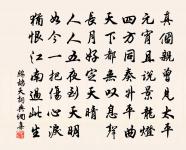 真個親曾見太平
元宵且說景龍燈
四方同奏昇平曲
天下都無嘆息聲
長月好定天晴
人人五夜到天明
如今一把傷心淚
猶恨江南過此生